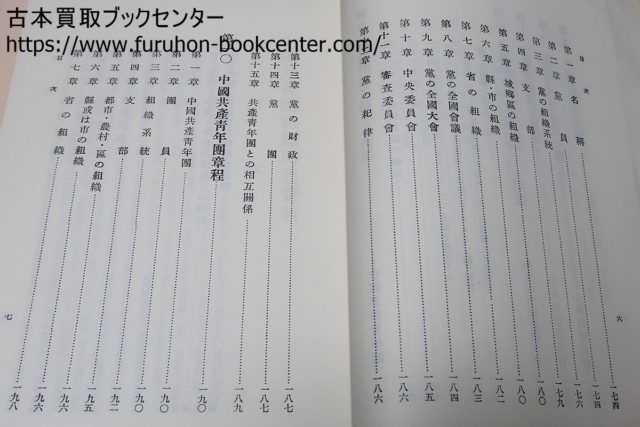 古本買取ブックセンター
https://www.furuhon-bookcenter.com/
目次
第一章 名稱 一七四
第二章 黨員 一七四
第三章 黨の組織系統 一七九
第四章 支部 一八〇
第五章 城鄕區の組織 一八一
第六章 縣・市の組織 一八二
第七章 省の組織 一八三
第八章 黨の全國會議 一八四
第九章 黨の全國大會 一八五
第十章 中央委員會 一八六
第十一章 審查委員會 一八六
第十二章 黨の紀律 一八六
六
第十三章 黨の財政 一八七
第十四章 黨團 一八七
第十五章 共產青年團との相互關係 一八九
中國共產青年團章程 一九〇
第一章 中國共產青年團 一九〇
第二章 團員 一九〇
第三章 組織系統 一九〇
第四章 支部 一九二
第五章 都市・農村・區の組織 一九五
第六章 縣或は市の組織 一九六
第七章 省の組織 一九八
目次
七